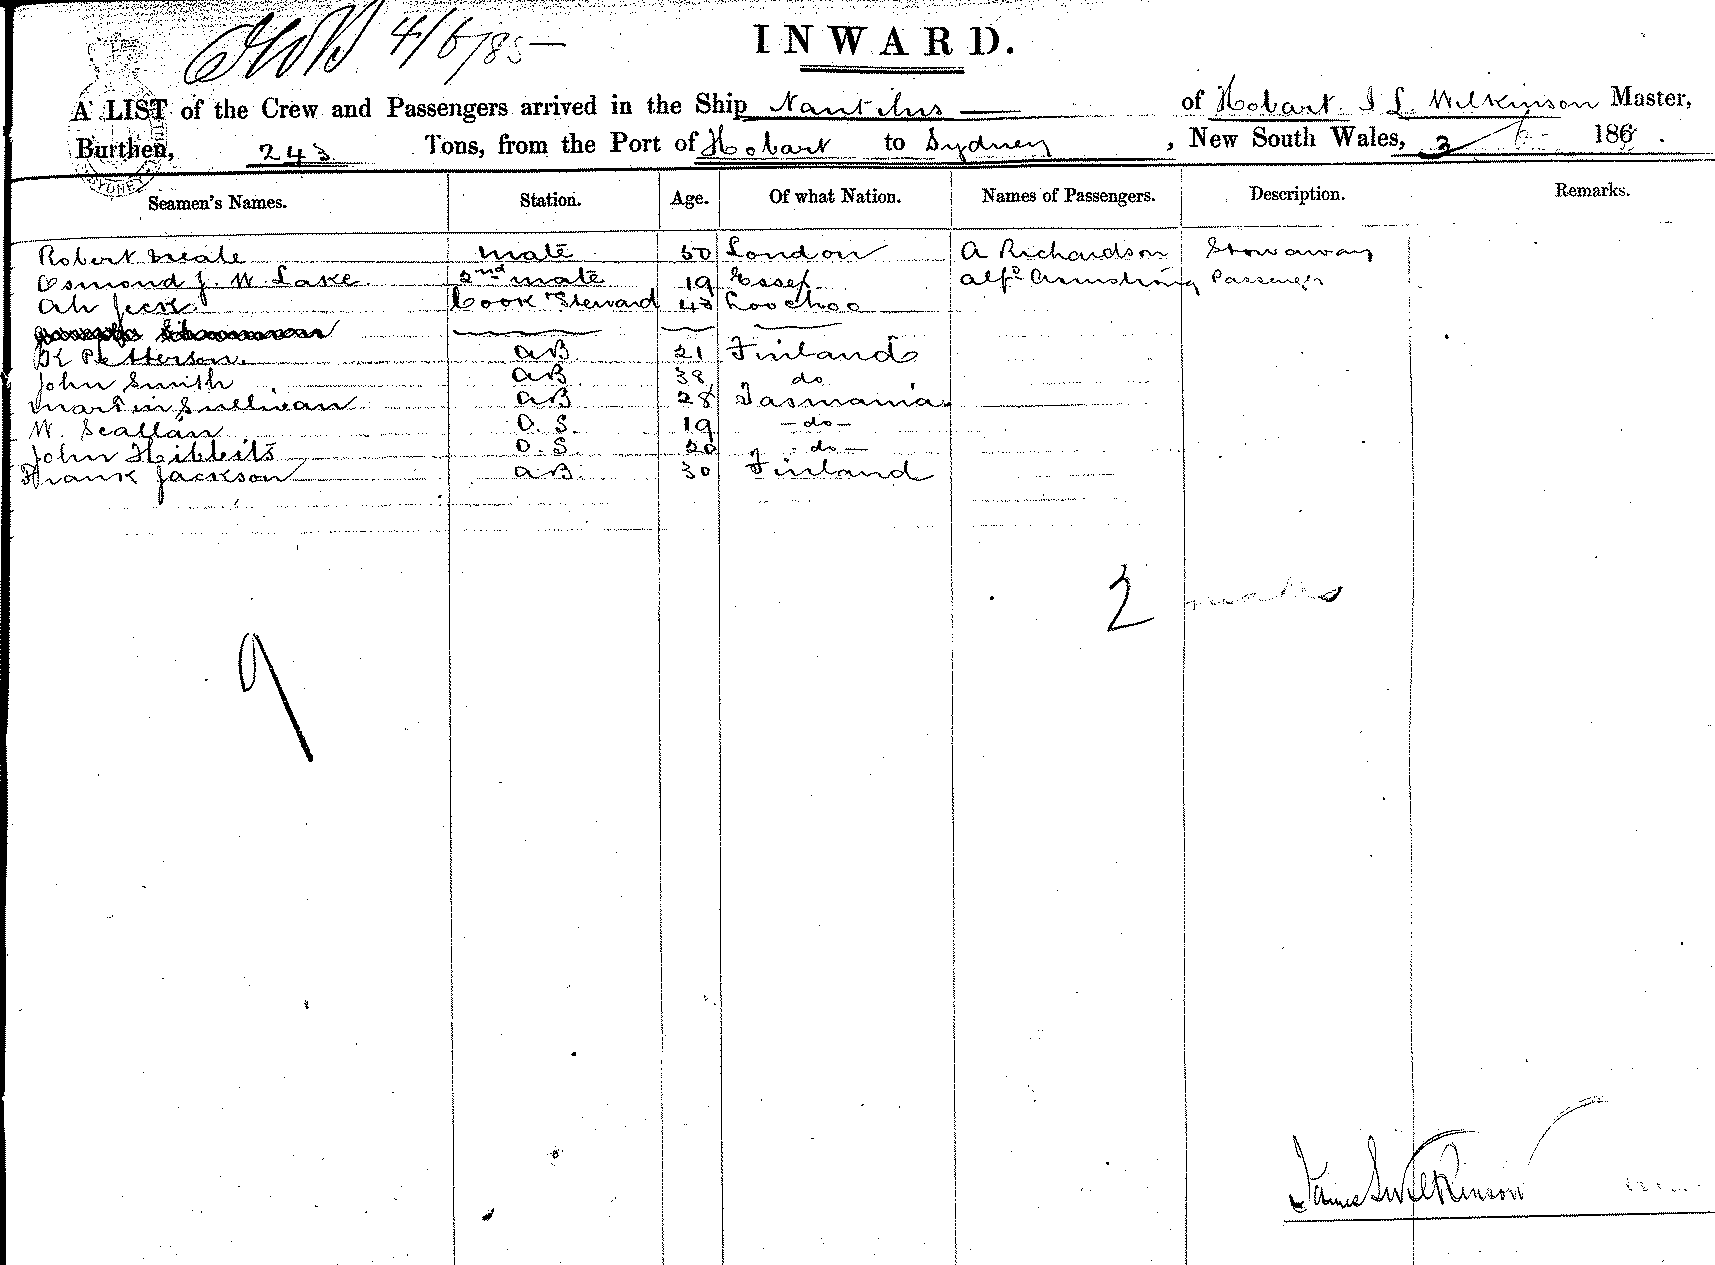 4/6/85 —
INWARD.
A LIST of the Crew and Passengers arrived in the Ship Nautilus — of Hobart. J S. Wilkinson Master,
Burthen, 243 Tons, from the Port of Hobart to Sydney , New South Wales, 3 6 186 .
Seamen's Names. Station. Age. Of what Nation. Names of Passengers. Description. Remarks.
Robert Neale mate 50 London A Richardson Stowaway
Osmond J. W. Lake 2nd mate 19 Essex Alfd Armstrong Passenger
Ah Jeck Cook Steward 43 Loochoo
Petterson AB 21 Finland
John Smith AB 38 do
Martin Sullivan AB 28 Tasmania
W. Scallan O. S. 19 -do-
John Hibbits O. S. 20 do-
Frank Jackson AB 30 Finland
2 males
9
James S Wilkinson